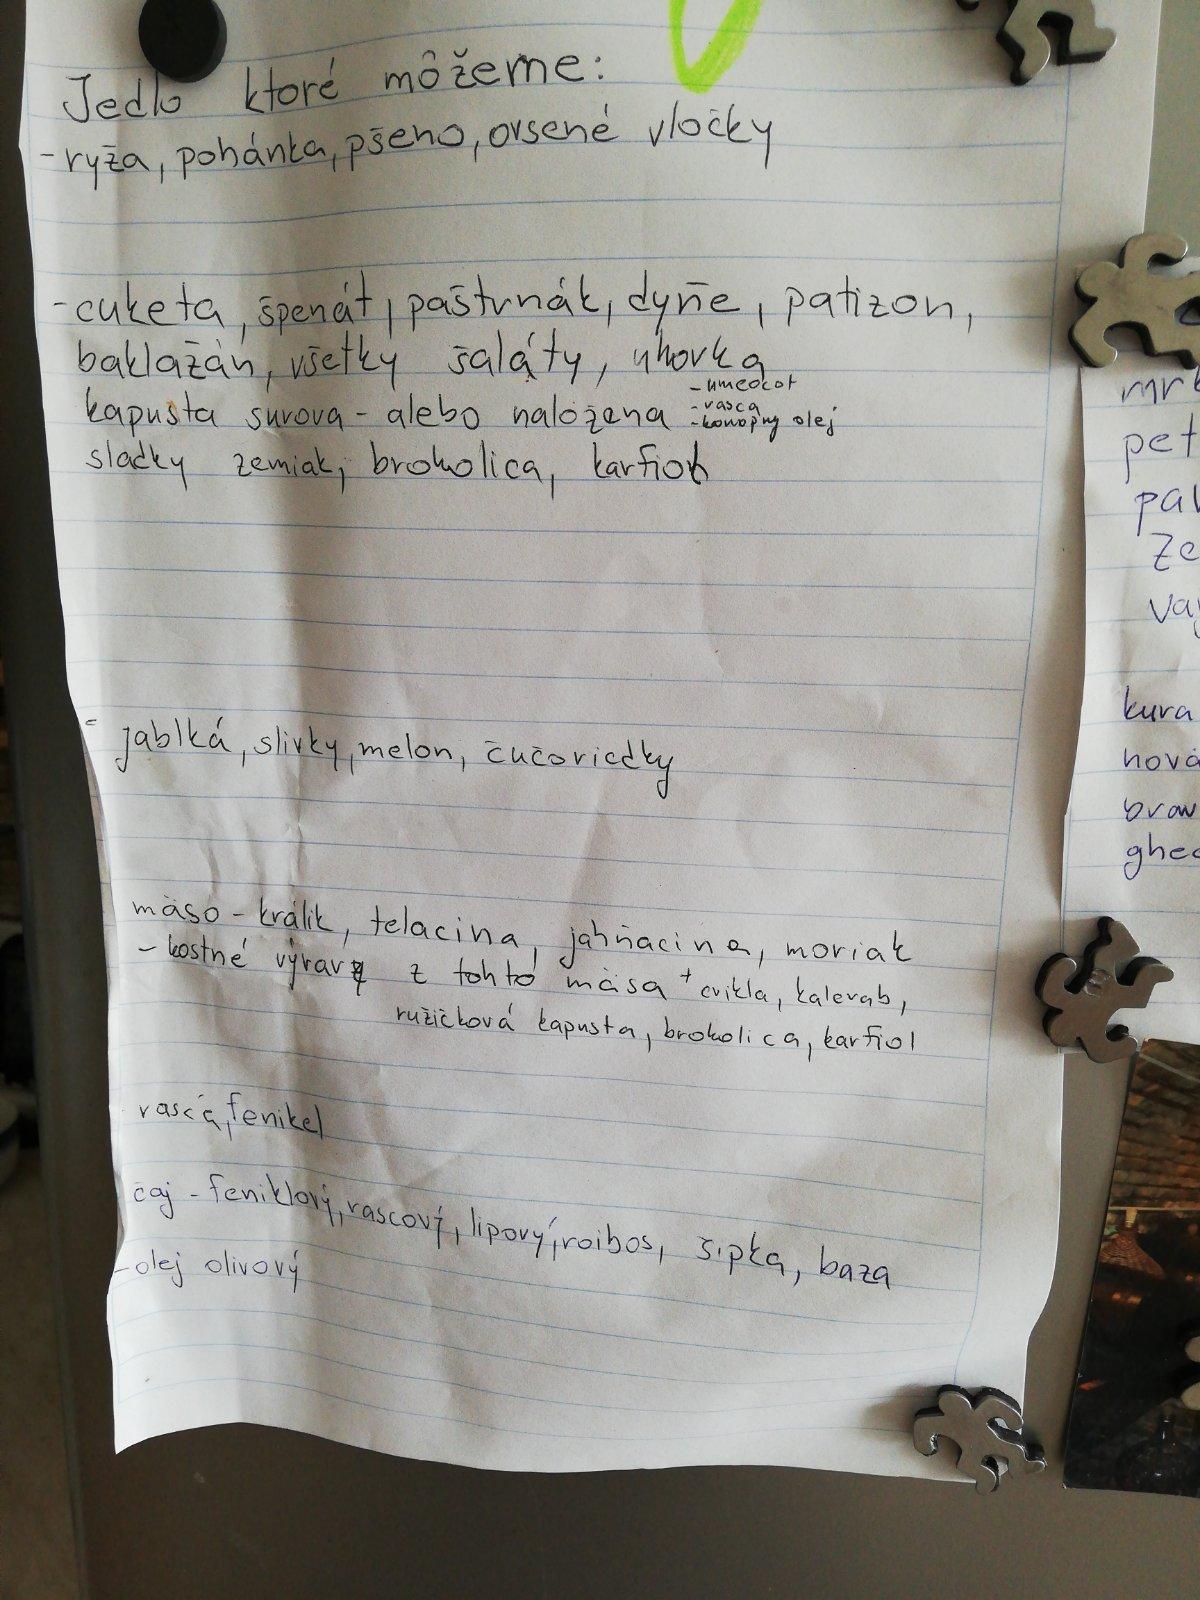 Jedlo ktoré môžeme:
-ryža, pohánka, pšeno, ovsené vločky
-cuketa, špenát, paštrnák, dyňe, patizon,
baklažán, všetky šaláty, uhorka
-umeocot
kapusta surova - alebo naložena -rasca
-konopny olej
sladky zemiak, brokolica, karfiol
- jablká, slivky, melon, čučoriedky
mäso - králik, telacina, jahňacina, moriak
- kostné vývary z tohto mäsa + cvikla, kalerab,
ružičková kapusta, brokolica, karfiol
rasca, fenikel
čaj - feniklový, rascový, lipový, roibos, šipka, baza
-olej olivový
mrk
pet
pav
Ze
vaj
kura
nová
brav
ghee